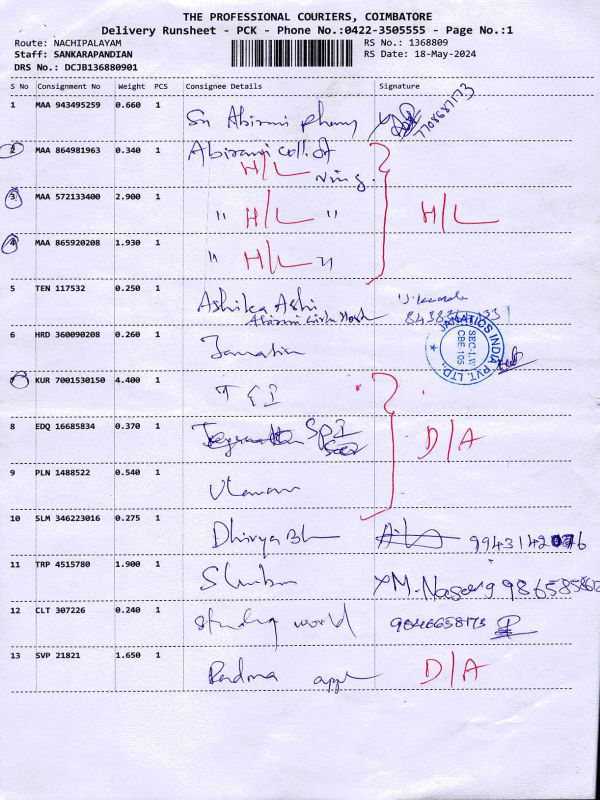 THE PROFESSIONAL COURIERS, COIMBATORE
Delivery Runsheet - PCK - Phone No.:0422-3505555 - Page No.:1
Route: NACHIPALAYAM RS No.: 1368809
Staff: SANKARAPANDIAN RS Date: 18-May-2024
DRS No.: DCJB136880901
S No Consignment No Weight PCS Consignee Details Signature
1 MAA 943495259 0.660 1 Sri Abirami 7708687173
2 MAA 864981963 0.340 1 Abirami coll. of
H/L
3 MAA 572133400 2.900 1 " H/L " H/L
4 MAA 865920208 1.930 1 " H/L "
5 TEN 117532 0.250 1 Ashika Ashi
Abirami Girls
6 HRD 360090208 0.260 1 JANATICS INDIA PVT. LTD. SEC-I.W CBE-105
KUR 7001530150 4.400 1
8 EDQ 16685834 0.370 1 D/A
9 PLN 1488522 0.540 1
10 SLM 346223016 0.275 1 Dhivya Bh
11 TRP 4515780 1.900 1 M. Naseer
12 CLT 307226 0.240 1 world 9846658173
13 SVP 21821 1.650 1 Padma D/A